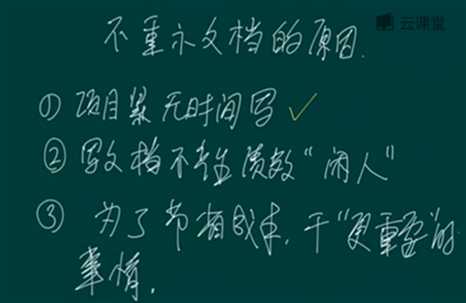 云课堂
不重视文档的原因.
① 项目紧 无时间写 ✓
② 写文档不产生绩效“闲人”
③ 为了节省成本,干“更重要”的
事情.